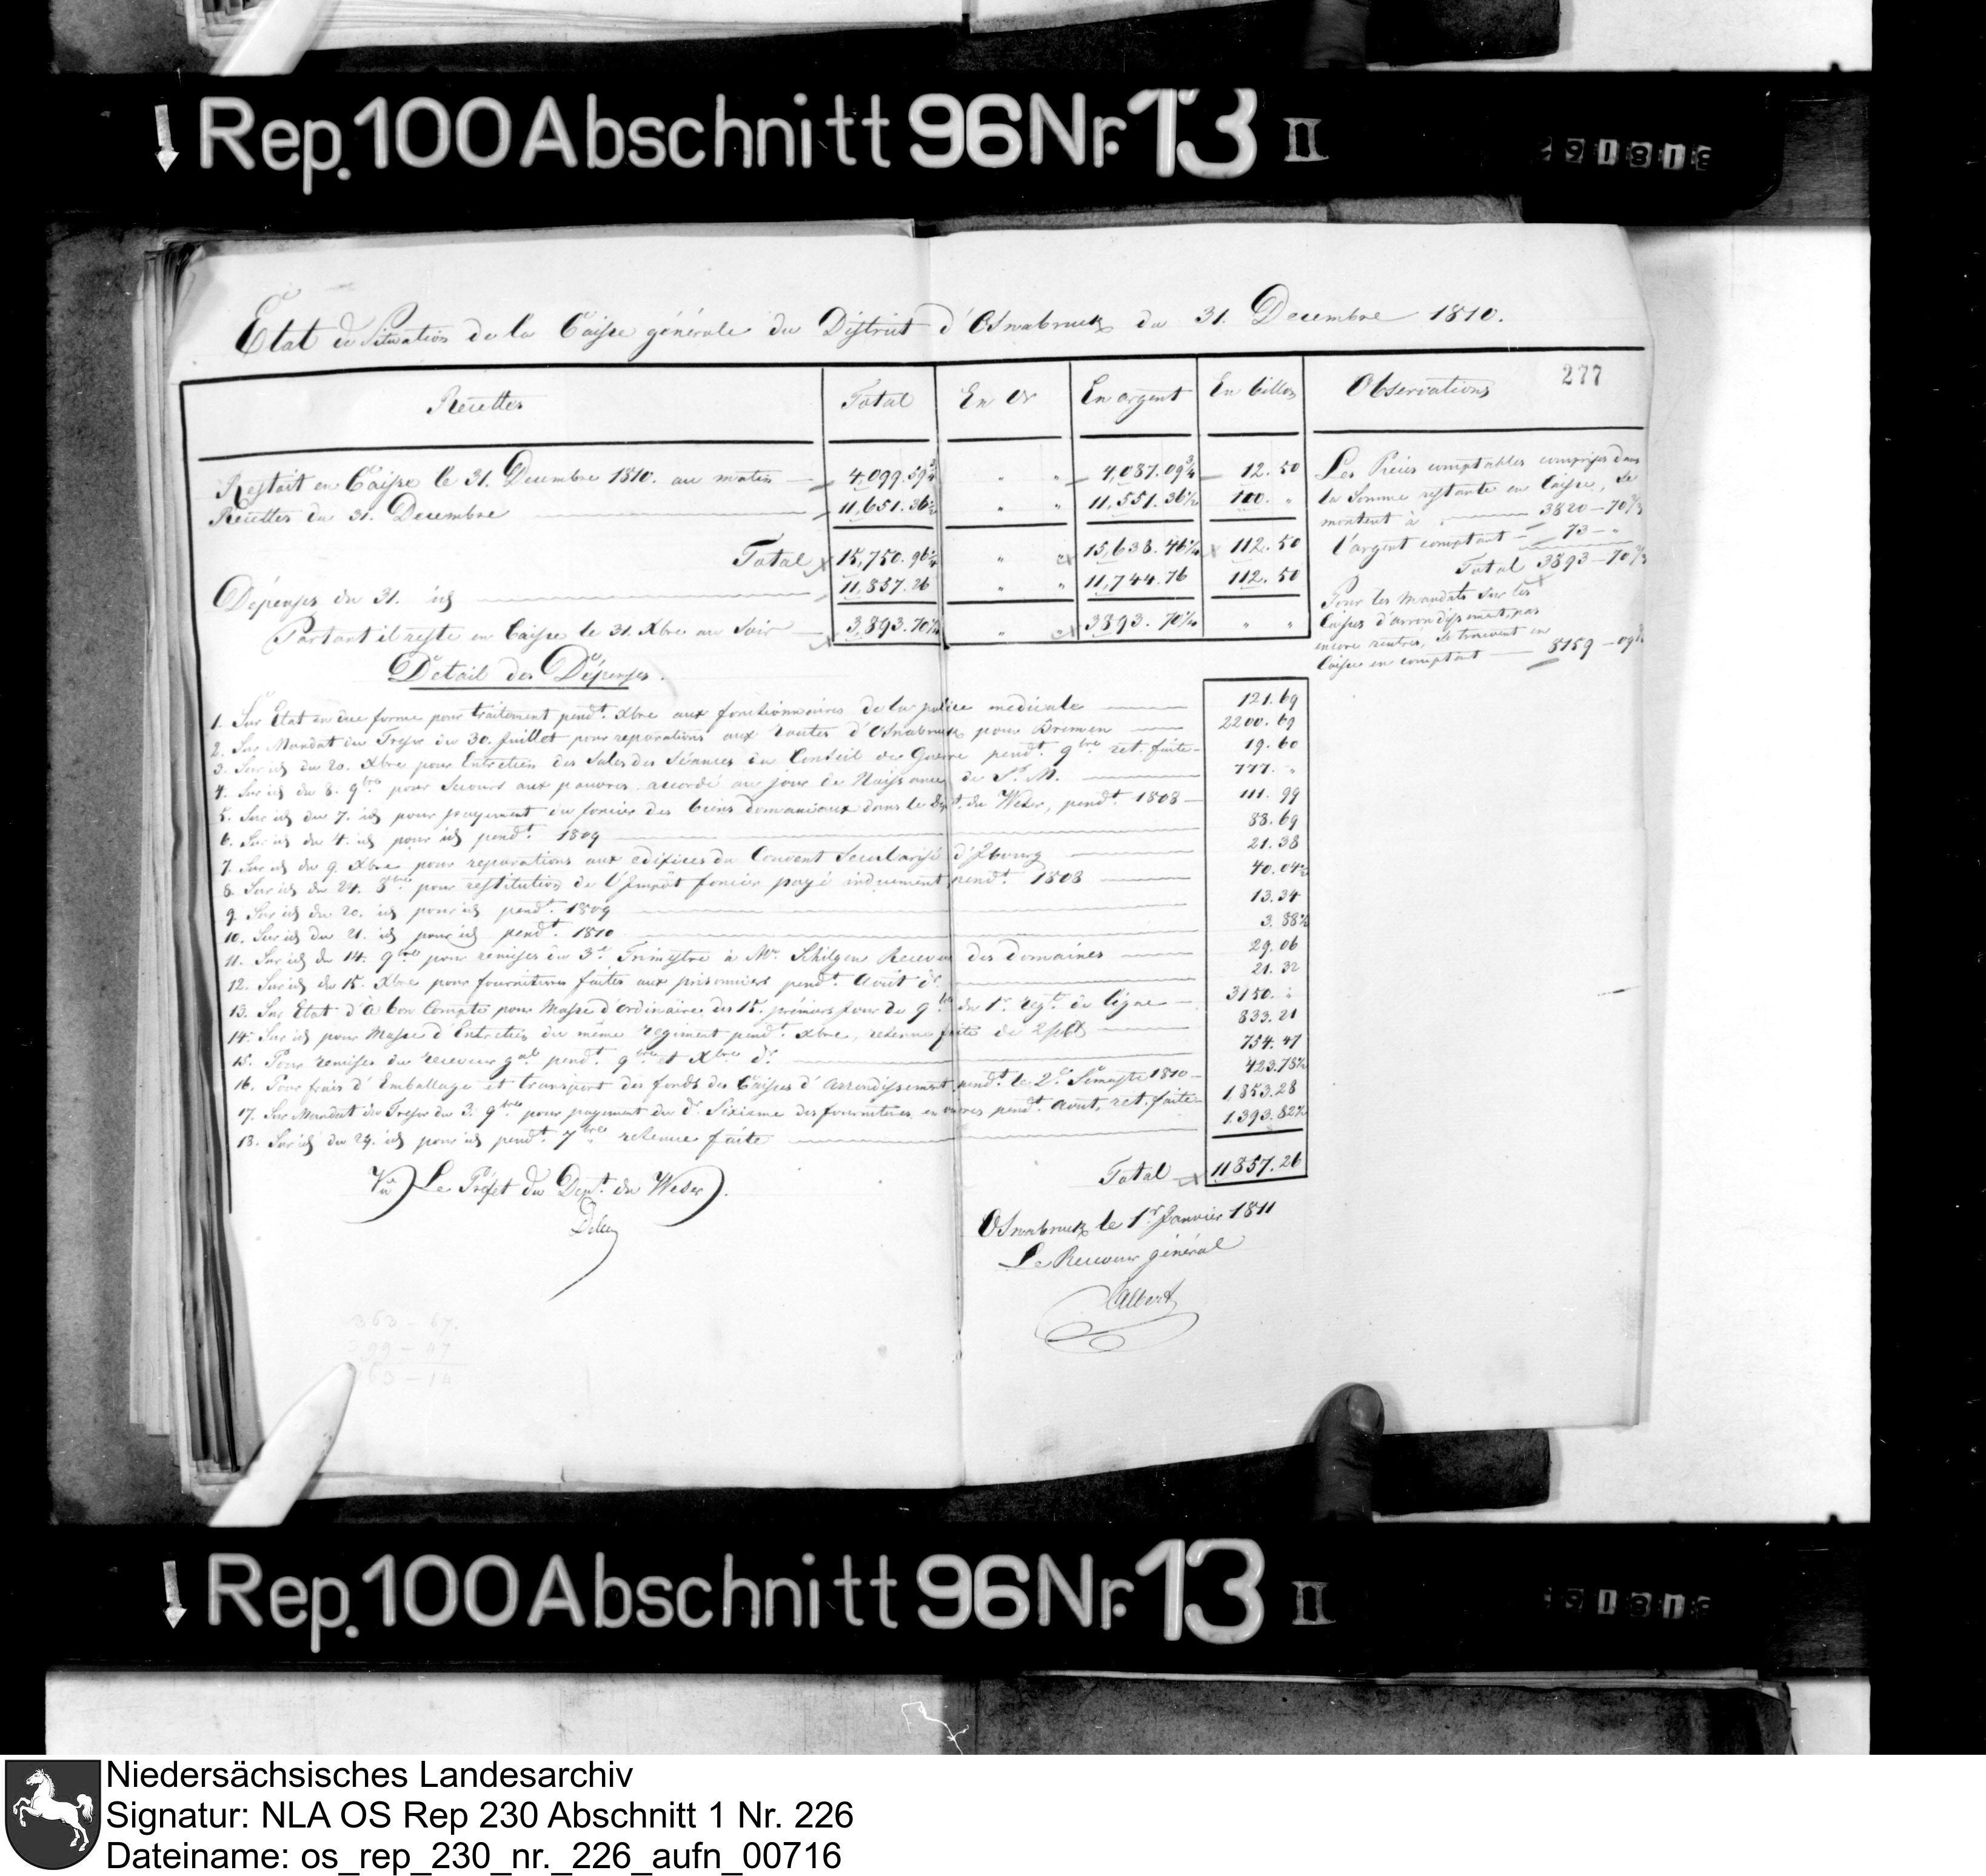 Rep. 100 Abschnitt 96 Nr. 13 II
Etat de Situation de la Caisse générale du District d'Osnabruck du 31. Decembre 1810.
277
Recettes Total En Or En argent En billon Observations
Restoit en Caisse le 31. Decembre 1810. au matin 4,099.59¾ " " 4,087.09¾ 12.50
Recettes du 31. Decembre 11,651.36½ " " 11,551.36½ 100. "
Total 15,750.96¼ " " 15,638.46¼ 112.50
Dépenses du 31. id 11,857.26 " " 11,744.76 112.50
Partant il reste en Caisse le 31. Xbre au Soir 3,893.70¼ " " 3893.70¼ " "
Les Pièces comptables comprises dans
la Somme restante en Caisse, se
montent à 3820-70¼
l'argent comptant 73-"
Total 3893-70¼
Pour les Mandats sur les
Caisses d'arrondissement, pas
encore rentrés, se trouvent en
Caisse en comptant 5159-09
Detail des Dépenses.
1. Sur Etat en due forme pour traitement pendt. Xbre aux fonctionnaires de la police medicale 121.69
2. Sur Mandat du Tresor du 30. Juillet pour reparations aux routes d'Osnabruck pour Bremen 2200.69
3. Sur id du 20. Xbre pour Entretien des Sales des Séances du Conseil de Guerre pendt. 9bre ret. faite 19.60
4. Sur id du 8. 9bre pour Secours aux pauvres accordé au jour de Naissance de S. M. 777. "
5. Sur id du 7. id pour payement du foncier des biens domaniaux dans le Dept. du Weser, pendt. 1808 111.99
6. Sur id du 4. id pour id pendt. 1809 88.69
7. Sur id du 9. Xbre pour reparations aux edifices du Couvent Secularisé d'Ibourg 21.38
8. Sur id du 24. 8bre pour restitution de l'Impôt foncier payé indûement pendt. 1808 40.04½
9. Sur id du 20. id pour id pendt. 1809 13.34
10. Sur id du 21. id pour id pendt. 1810 3.88½
11. Sur id du 14. 9bre pour remises du 3e Trimestre à Mr. Schilgen Receveur des domaines 29.06
12. Sur id du 15. Xbre pour fournitures faites aux prisonniers pendt. Août dr. 21.32
13. Sur Etat d'à bon Compte pour Masse d'ordinaire des 15. prémiers jours de 9bre du 1r. regt. de ligne 3150. "
14. Sur id pour Masse d'Entretien du même regiment pendt. Xbre, retenue faite de 2 pCt 833.21
15. Pour remises du receveur gal pendt. 9bre et Xbre dr. 754.47
16. Pour frais d'Emballage et transport des fonds des Caisses d'arrondissement pendt. le 2d. Semestre 1810 423.78½
17. Sur Mandat du Tresor du 3. 9bre pour payement du dr. Sixieme des fournitures en vivres pendt. Aout, ret. faite 1,853.28
18. Sur id du 29. id pour id pendt. 7bre retenue faite 1393.82½
Total 11857.26
Vû) Le Préfet du Dept. du Weser).
Osnabruck le 1r Janvier 1811
Le Receveur général
Albert
363-67.
399-47
63-14
Rep. 100 Abschnitt 96 Nr. 13 II
Niedersächsisches Landesarchiv
Signatur: NLA OS Rep 230 Abschnitt 1 Nr. 226
Dateiname: os_rep_230_nr._226_aufn_00716